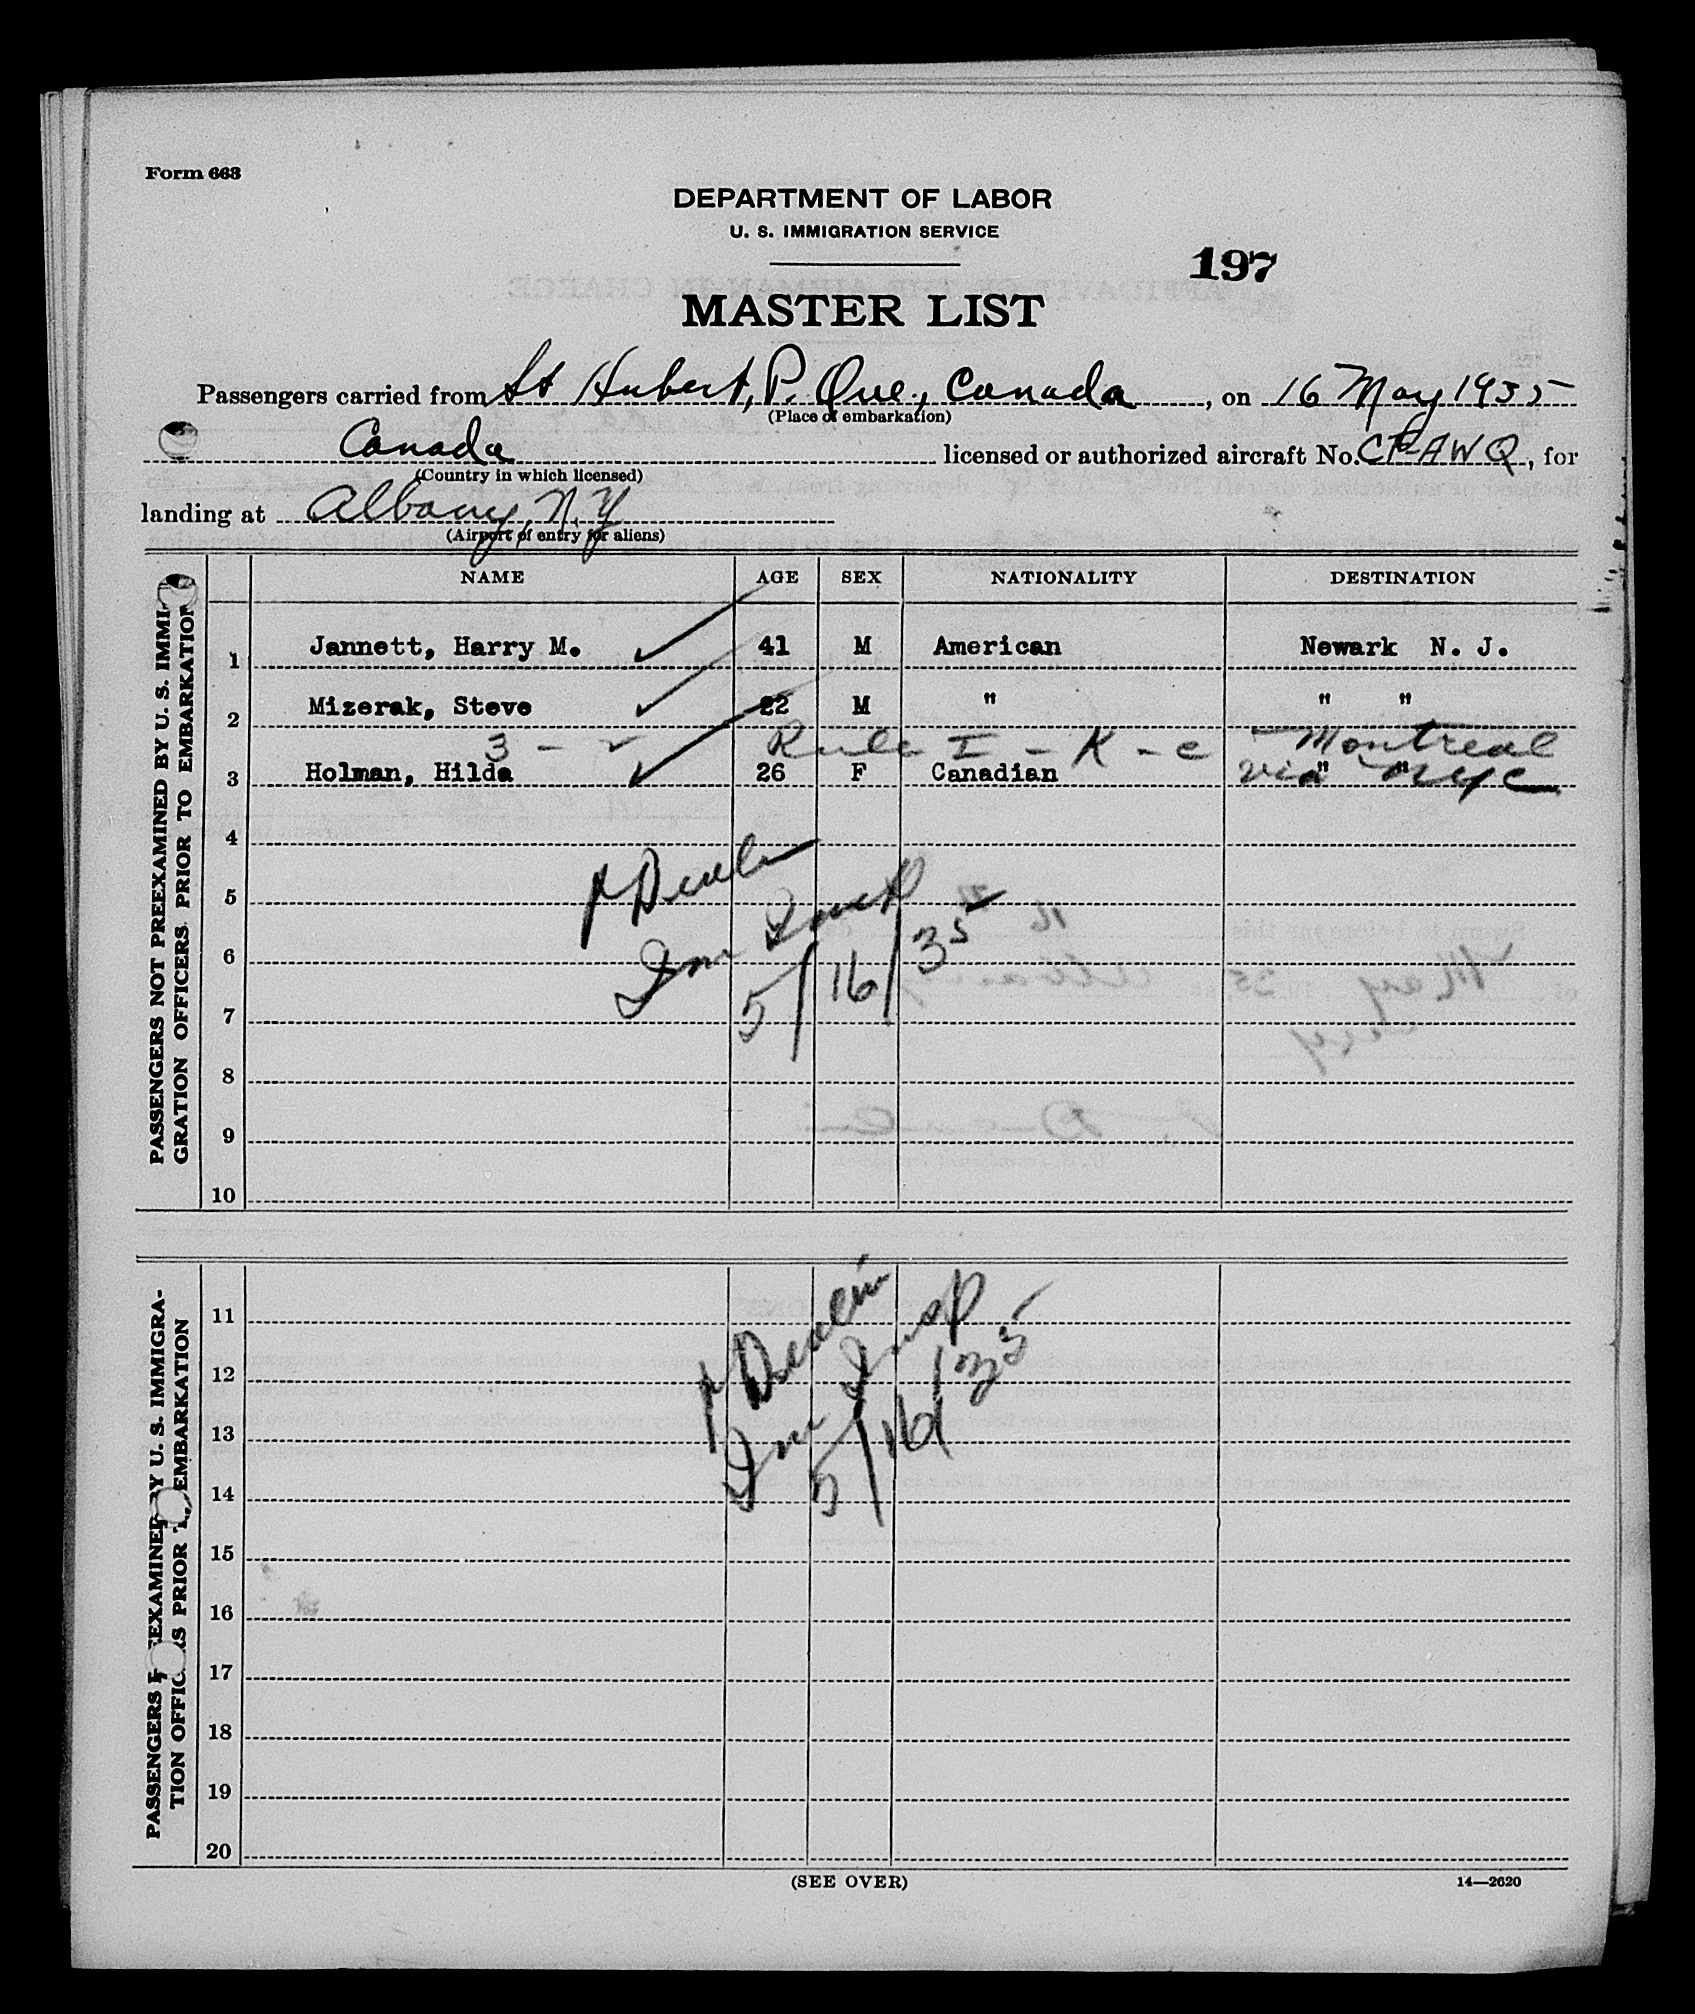 Form 663
DEPARTMENT OF LABOR
U. S. IMMIGRATION SERVICE
197
MASTER LIST
Passengers carried from St Hubert, P. Que., Canada, on 16 May 1935
(Place of embarkation)
Canada licensed or authorized aircraft No. CF-AWQ, for
(Country in which licensed)
landing at Albany, N.Y
(Airport of entry for aliens)
NAME AGE SEX NATIONALITY DESTINATION
PASSENGERS NOT PREEXAMINED BY U. S. IMMI-
GRATION OFFICERS PRIOR TO EMBARKATION
1 Jannett, Harry M. 41 M American Newark N. J.
2 Mizerak, Steve 22 M " " "
3 - Rule I - K - c Montreal
3 Holman, Hilda 26 F Canadian " "
via NYC
4
5
6
7
8
9
10
Imm Insp
5/16/35
PASSENGERS PREEXAMINED BY U. S. IMMIGRA-
TION OFFICERS PRIOR TO EMBARKATION
11
12
13
14
15
16
17
18
19
20
Imm Insp
5/16/35
(SEE OVER)
14—2620